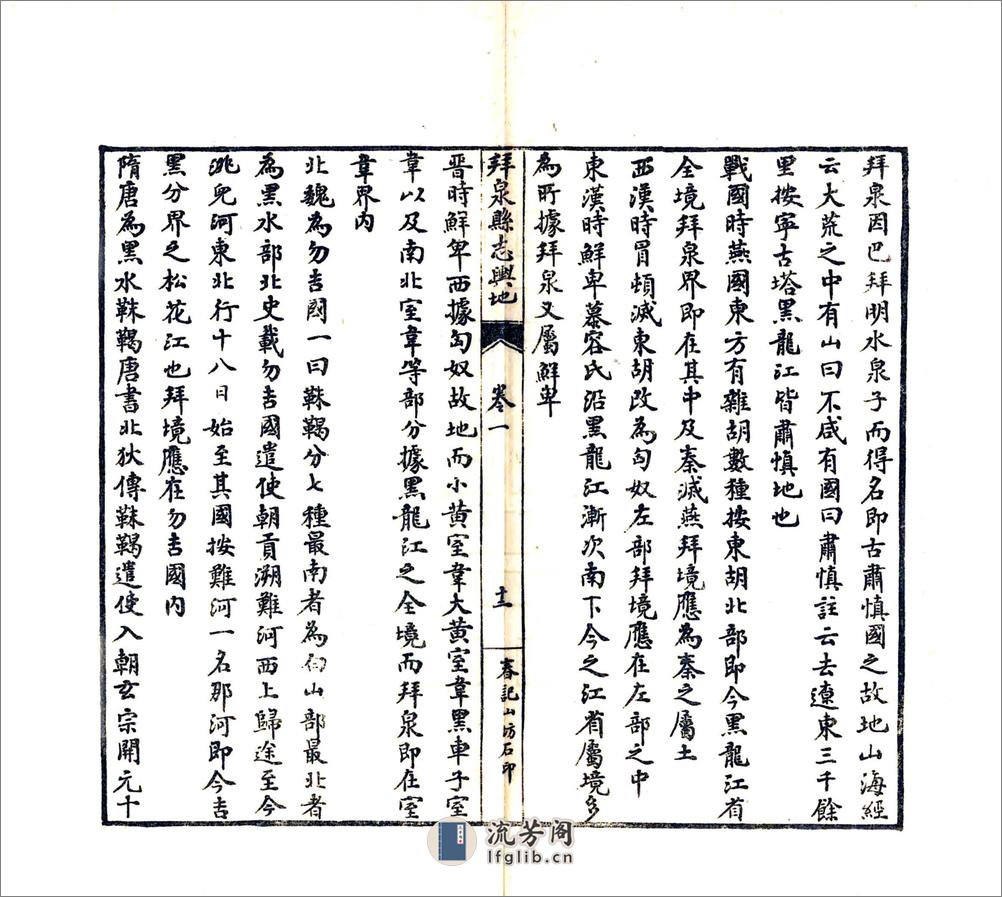 拜泉因巴拜明水泉子而得名即古肅慎國之故地山海經
云大荒之中有山曰不咸有國曰肅慎註云去遼東三千餘
里按寧古塔黑龍江皆肅慎地也
戰國時燕國東方有雜胡數種按東胡北部即今黑龍江省
全境拜泉界即在其中及秦滅燕拜境應為秦之屬土
西漢時冒頓滅東胡改為匈奴左部拜境應在左部之中
東漢時鮮卑慕容氏沿黑龍江漸次南下今之江省屬境多
為所據拜泉又屬鮮卑
拜泉縣志輿地 卷一 十二 春記山坊石印
晋時鮮卑西據匈奴故地而小黄室韋大黄室韋黑車子室
韋以及南北室韋等部分據黑龍江之全境而拜泉即在室
韋界內
北魏為勿吉國一曰靺鞨分七種最南者為白山部最北者
為黑水部北史載勿吉國遣使朝貢溯難河西上歸途至今
洮兒河東北行十八日始至其國按難河一名那河即今吉
黑分界之松花江也拜境應在勿吉國內
隋唐為黑水靺鞨唐書北狄傳靺鞨遣使入朝玄宗開元十
流芳阁
lfglib.cn